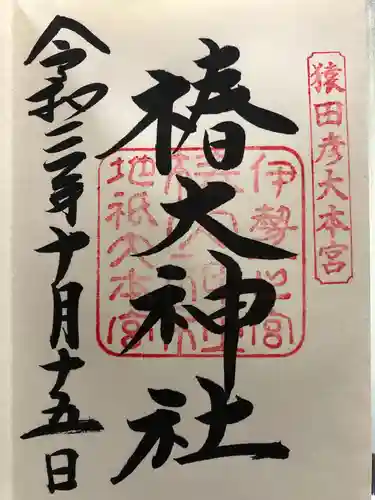 猿田彦大本宮
椿大神社
伊勢一之宮
地祇大本宮
令和三年十月十五日